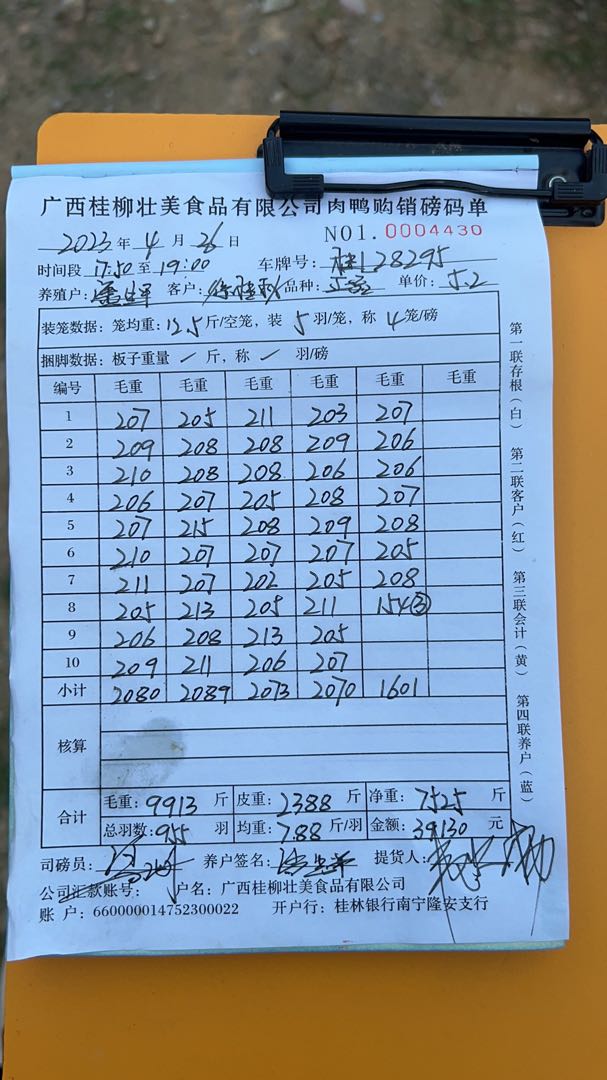 广西桂柳壮美食品有限公司肉鸭购销磅码单
2023年4月26日 NO1.0004430
时间段 17:50至19:00 车牌号：桂J28295
养殖户： 客户： 品种： 单价：5.2
装笼数据：笼均重：12.5斤/空笼，装5羽/笼，称4笼/磅
捆脚数据：板子重量 / 斤，称 / 羽/磅
编号 毛重 毛重 毛重 毛重 毛重 毛重
1 207 205 211 203 207
2 209 208 208 209 206
3 210 208 208 206 206
4 206 207 205 208 207
5 207 215 208 209 208
6 210 207 207 207 205
7 211 207 202 205 208
8 205 213 205 211 154③
9 206 208 213 205
10 209 211 206 207
小计 2080 2089 2073 2070 1601
核算
合计 毛重：9913斤 皮重：2388斤 净重：7525斤
总羽数：955羽 均重：788斤/羽 金额：39130元
司磅员： 养户签名： 提货人：
公司汇款账号： 户名：广西桂柳壮美食品有限公司
账户：660000014752300022 开户行：桂林银行南宁隆安支行
第一联存根（白）
第二联客户（红）
第三联会计（黄）
第四联养户（蓝）